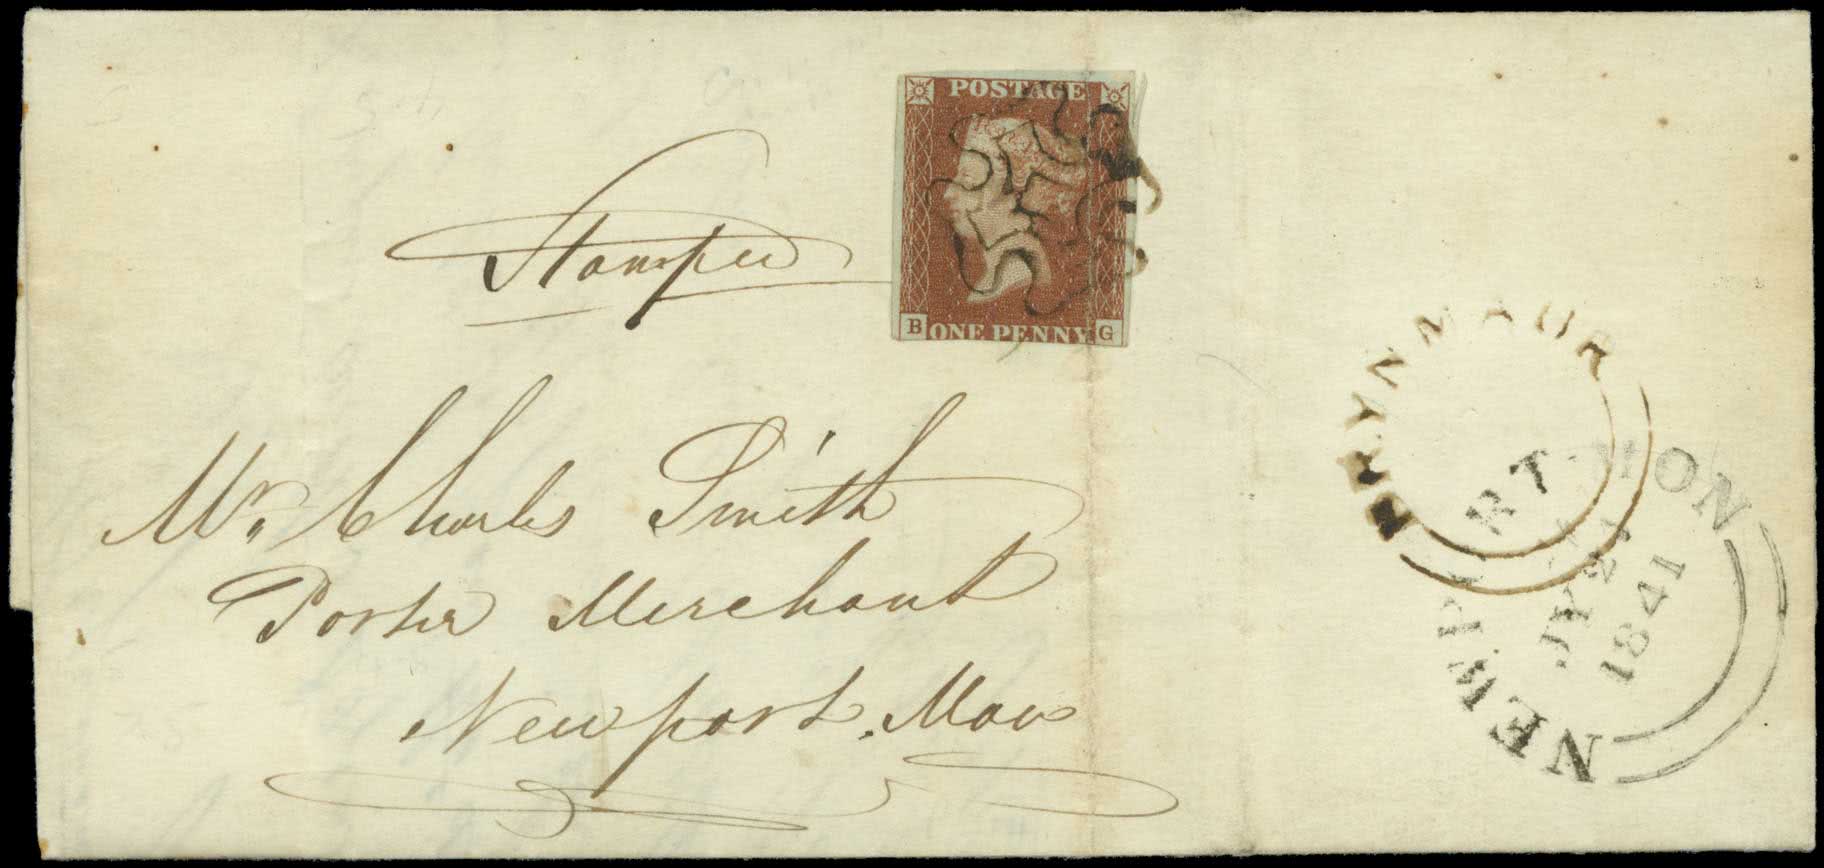 POSTAGE
Stamped
B ONE PENNY G
BRYNMAUR
NEWPORT-MON
JY 2
1841
Mr. Charles Smith
Porter Merchant
Newport. Mon